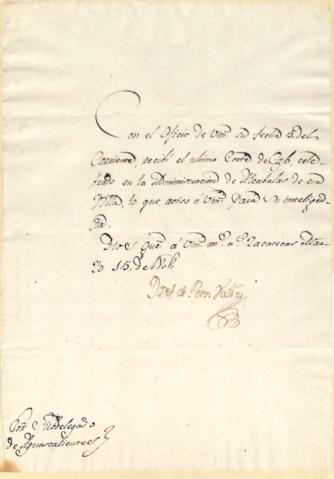 Con el Oficio de Vm. su fecha 2 del
Corriente, recibí el ultimo Corte de Caja, cele-
brado en la Administracion de Alcabalas de esa
Villa, lo que aviso á Vm. para su inteligen-
cia.
Dios gue. á Vm. m. a. Zacatecas Mar-
zo 15. de
de Peon Valdes
Sor. Subdelegado
de Aguascalientes